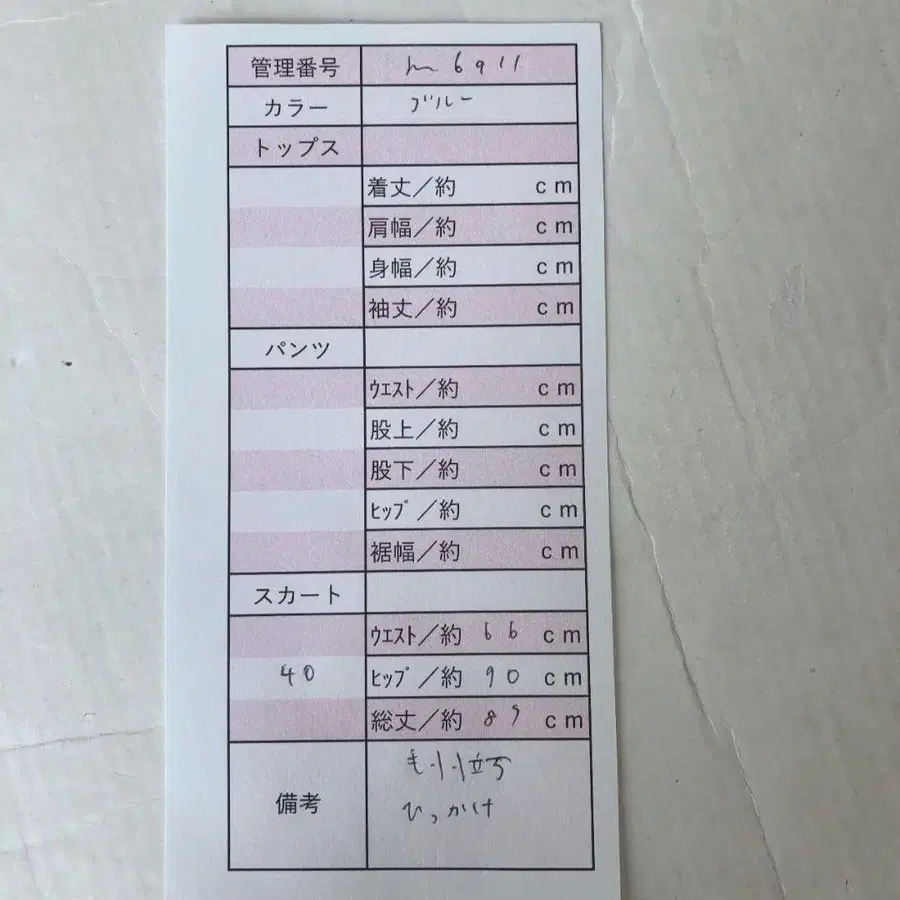 管理番号 m6911
カラー ブルー
トップス
着丈／約 cm
肩幅／約 cm
身幅／約 cm
袖丈／約 cm
パンツ
ｳｴｽﾄ／約 cm
股上／約 cm
股下／約 cm
ﾋｯﾌﾟ／約 cm
裾幅／約 cm
スカート
ｳｴｽﾄ／約 66 cm
40 ﾋｯﾌﾟ／約 90 cm
総丈／約 89 cm
備考 毛羽立ち
ひっかけ